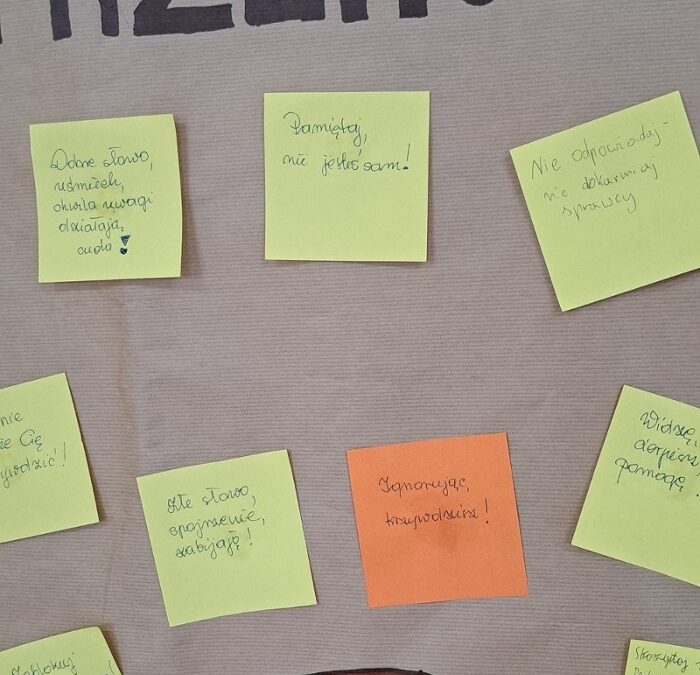 Dobre słowo,
uśmiech,
chwila uwagi
działają
cuda!
Pamiętaj,
nie jesteś sam!
Nie odpowiadaj -
nie dokarmiaj
sprawcy
nie
Cię
Złe słowo,
spojrzenie,
zabijają!
Ignorując,
krzywdzisz!
Widzę,
cierpisz,
pomogę
Zablokuj
Skorzystaj